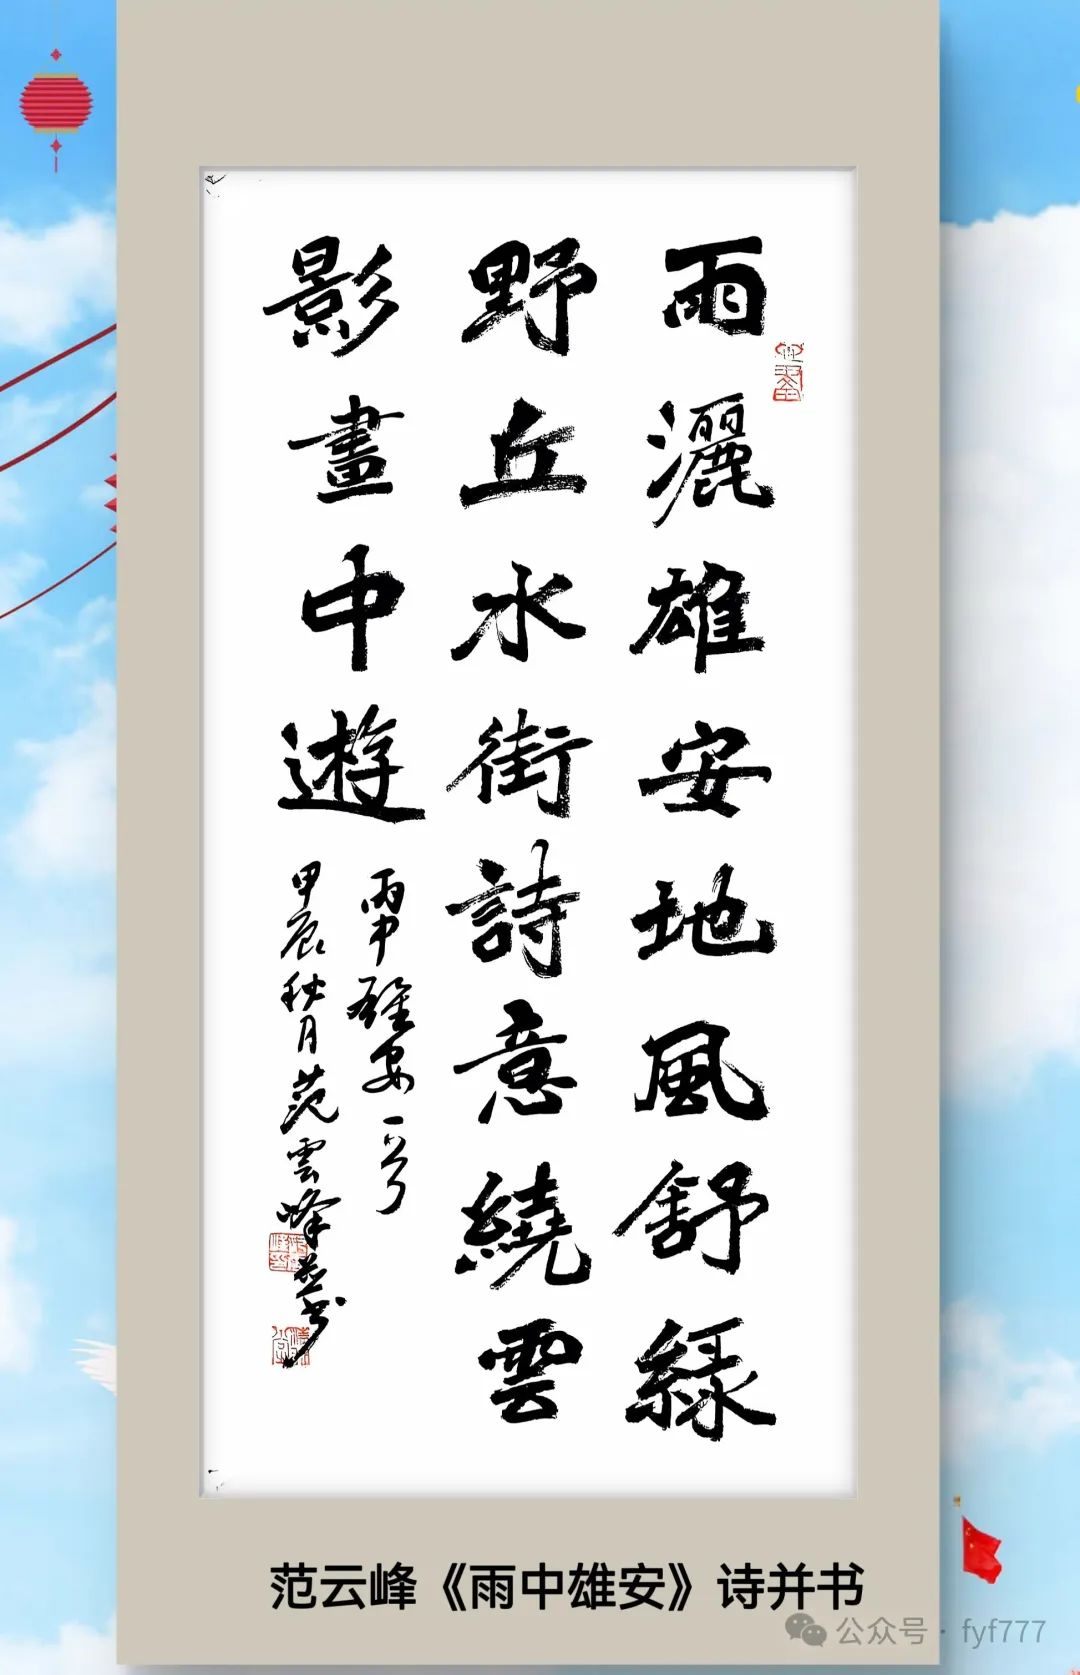 雨灑雄安地風舒綠
野丘水街詩意繞雲
影畫中遊
雨中雄安一首
甲辰秋月范雲峰并書
范云峰《雨中雄安》诗并书
公众号·fyf777